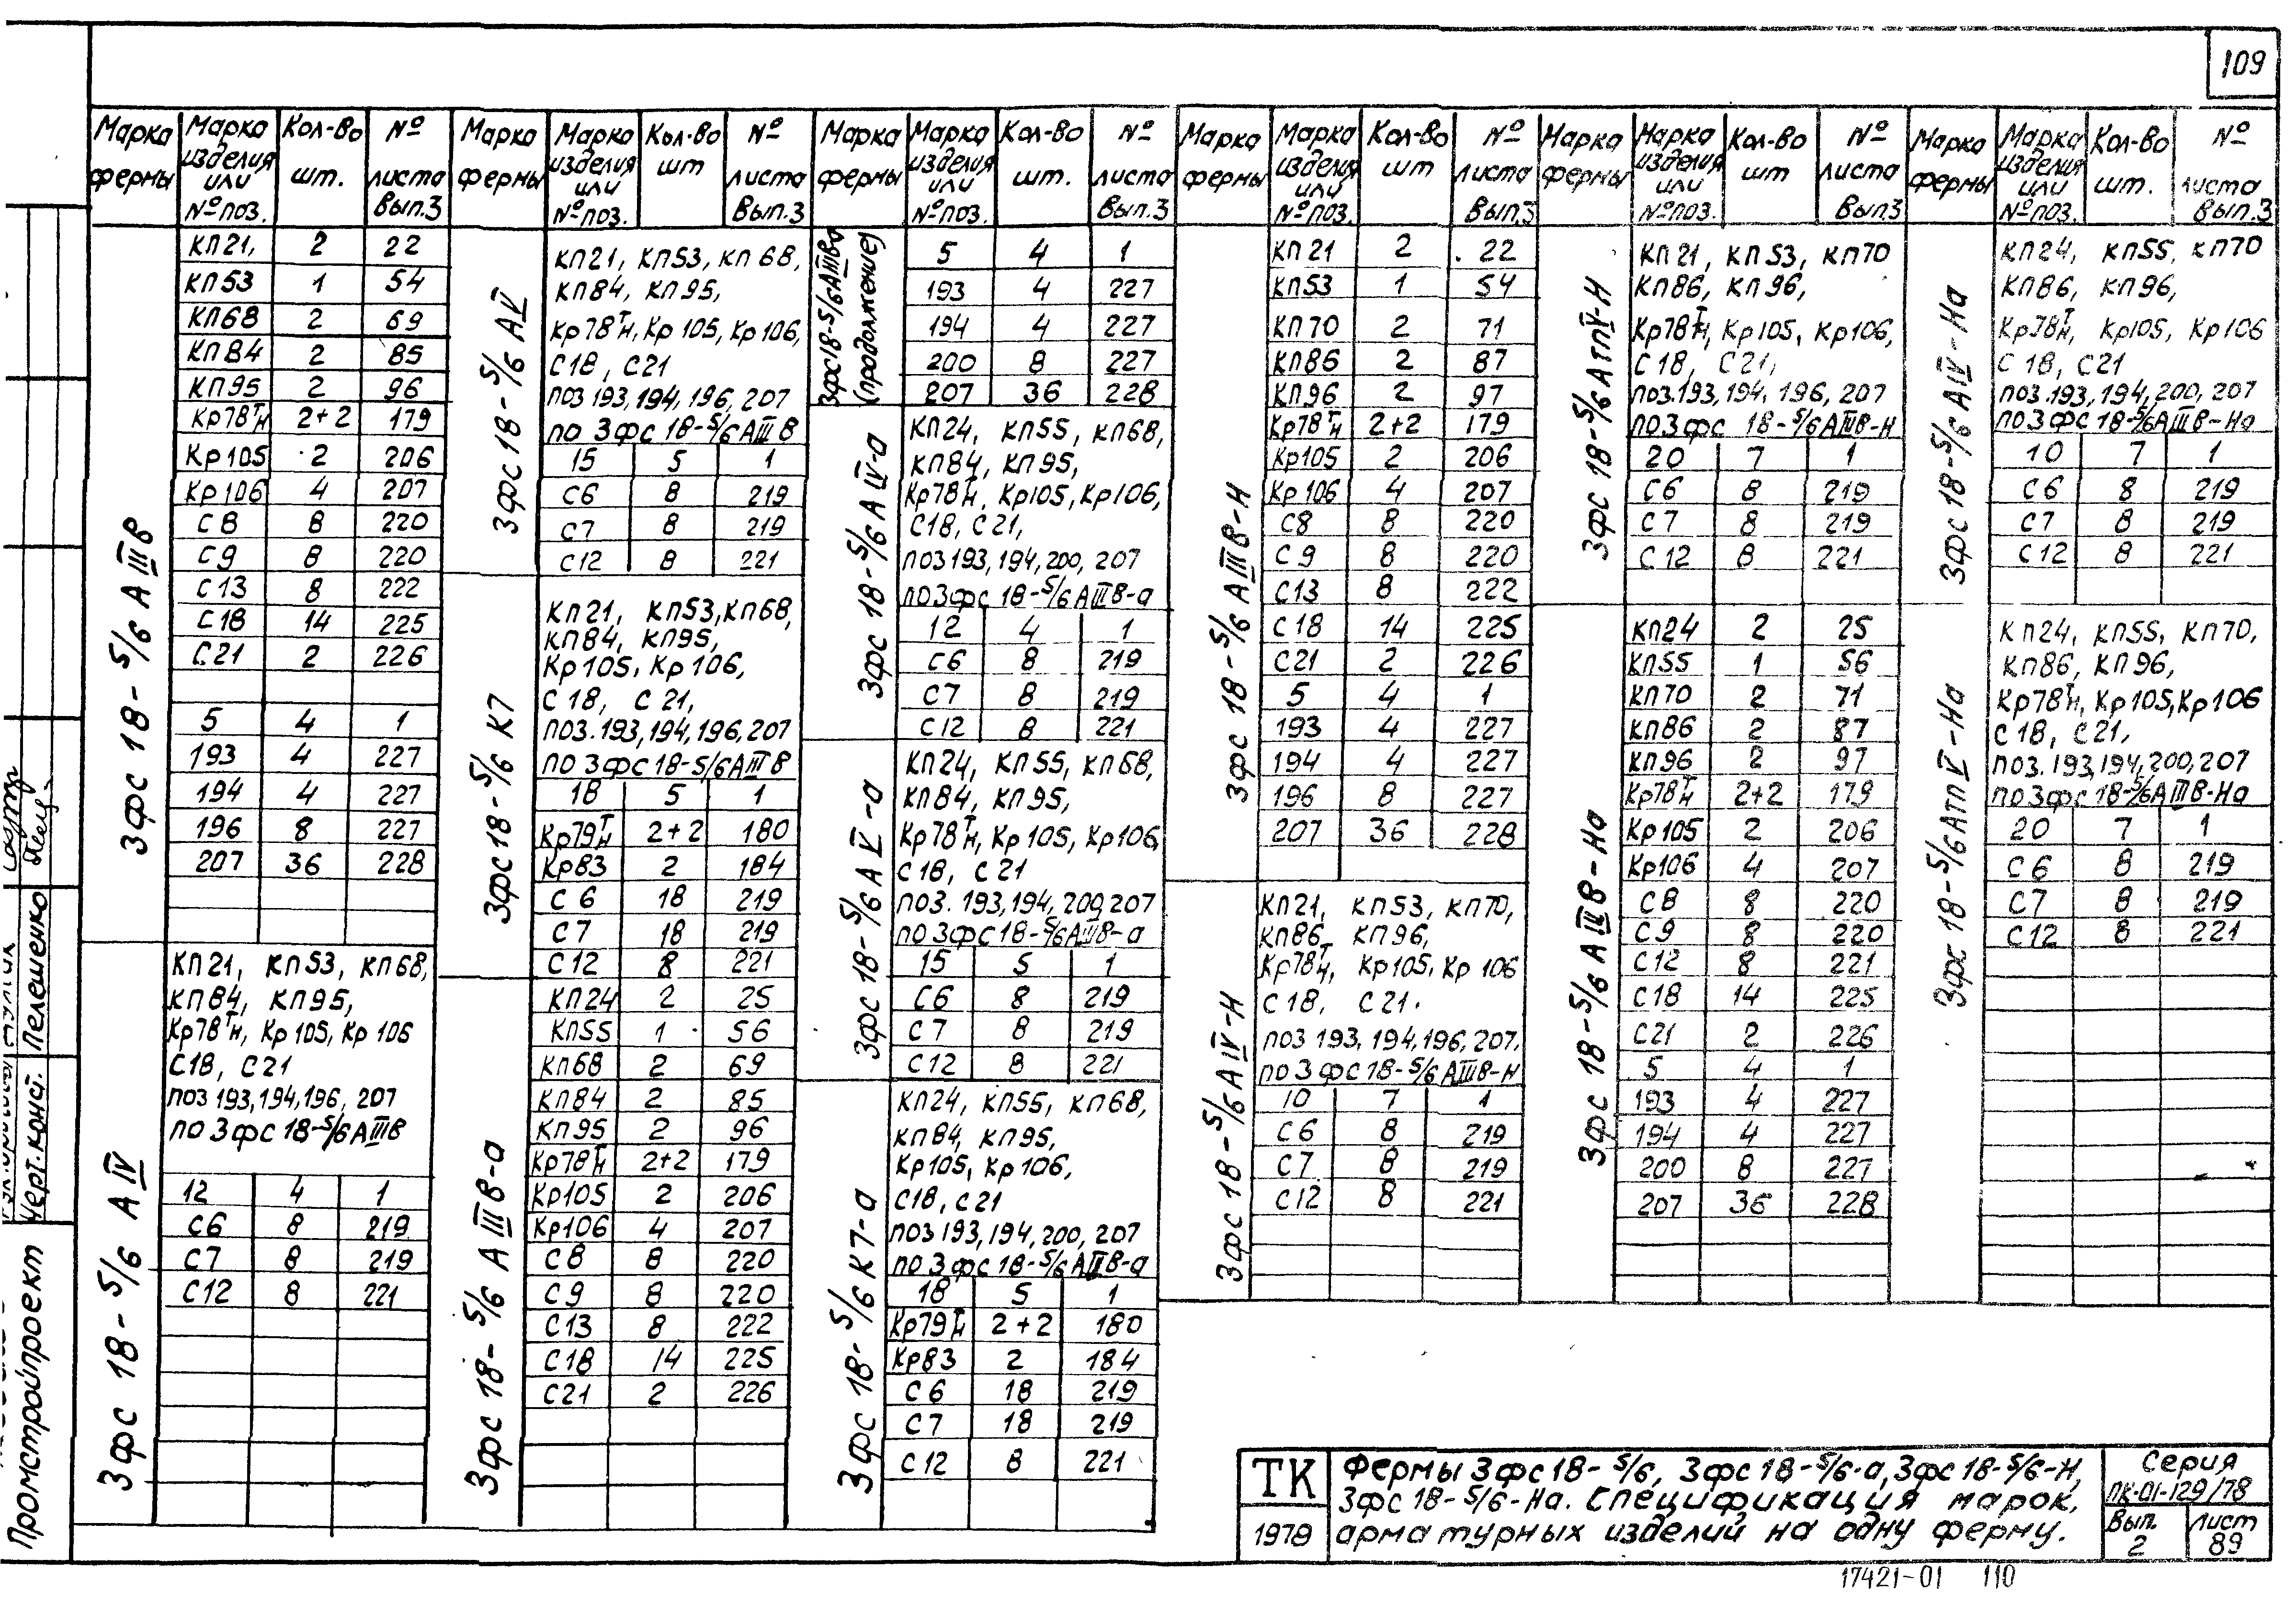 109
Марка фермы | Марка изделия или № поз. | Кол-во шт. | № листа Вып.3
3фс 18-5/6 АIIIв
КП21, 2 22
КП53 1 54
КП68 2 69
КП84 2 85
КП95 2 96
Кр78тн 2+2 179
Кр105 2 206
Кр106 4 207
С8 8 220
С9 8 220
С13 8 222
С18 14 225
С21 2 226
5 4 1
193 4 227
194 4 227
196 8 227
207 36 228
3фс 18-5/6 АIV
КП21, КП53, КП68,
КП84, КП95,
Кр78тн, Кр105, Кр106
С18, С21
поз 193, 194, 196, 207
по 3фс 18-5/6 АIIIв
12 4 1
С6 8 219
С7 8 219
С12 8 221
Марка фермы | Марка изделия или № поз. | Кол-во шт | № листа Вып.3
3фс18-5/6 АV
КП21, КП53, КП68,
КП84, КП95,
Кр78тн, Кр105, Кр106,
С18, С21
поз 193, 194, 196, 207
по 3фс 18-5/6 АIIIв
15 5 1
С6 8 219
С7 8 219
С12 8 221
3фс18-5/6 К7
КП21, КП53, КП68,
КП84, КП95,
Кр105, Кр106,
С18, С21,
поз. 193, 194, 196, 207
по 3фс 18-5/6 АIIIв
18 5 1
Кр79тн 2+2 180
Кр83 2 184
С6 18 219
С7 18 219
С12 8 221
3фс 18-5/6 АIIIв-а
КП24 2 25
КП55 1 56
КП68 2 69
КП84 2 85
КП95 2 96
Кр78тн 2+2 179
Кр105 2 206
Кр106 4 207
С8 8 220
С9 8 220
С13 8 222
С18 14 225
С21 2 226
Марка фермы | Марка изделия или № поз. | Кол-во шт. | № листа Вып.3
3фс18-5/6 АIIIв-а
(продолжение)
5 4 1
193 4 227
194 4 227
200 8 227
207 36 228
3фс 18-5/6 АIV-а
КП24, КП55, КП68,
КП84, КП95,
Кр78тн, Кр105, Кр106,
С18, С21,
поз 193, 194, 200, 207
по 3фс 18-5/6 АIIIв-а
12 4 1
С6 8 219
С7 8 219
С12 8 221
3фс 18-5/6 АV-а
КП24, КП55, КП68,
КП84, КП95,
Кр78тн, Кр105, Кр106,
С18, С21
поз. 193, 194, 200, 207
по 3фс 18-5/6 АIIIв-а
15 5 1
С6 8 219
С7 8 219
С12 8 221
3фс 18-5/6 К7-а
КП24, КП55, КП68,
КП84, КП95,
Кр105, Кр106,
С18, С21
поз 193, 194, 200, 207
по 3фс 18-5/6 АIIIв-а
18 5 1
Кр79тн 2+2 180
Кр83 2 184
С6 18 219
С7 18 219
С12 8 221
Марка фермы | Марка изделия или № поз. | Кол-во шт | № листа Вып.3
3фс 18-5/6 АIIIв-Н
КП21 2 22
КП53 1 54
КП70 2 71
КП86 2 87
КП96 2 97
Кр78тн 2+2 179
Кр105 2 206
Кр106 4 207
С8 8 220
С9 8 220
С13 8 222
С18 14 225
С21 2 226
5 4 1
193 4 227
194 4 227
196 8 227
207 36 228
3фс 18-5/6 АIV-Н
КП21, КП53, КП70,
КП86, КП96,
Кр78тн, Кр105, Кр106
С18, С21.
поз 193, 194, 196, 207.
по 3фс18-5/6 АIIIв-Н
10 7 1
С6 8 219
С7 8 219
С12 8 221
Марка фермы | Марка изделия или № поз. | Кол-во шт | № листа Вып3
3фс 18-5/6 АтпV-Н
КП21, КП53, КП70
КП86, КП96,
Кр78тн, Кр105, Кр106,
С18, С21,
поз.193, 194, 196, 207
по 3фс 18-5/6 АIIIв-Н
20 7 1
С6 8 219
С7 8 219
С12 8 221
3фс 18-5/6 АIIIв-На
КП24 2 25
КП55 1 56
КП70 2 71
КП86 2 87
КП96 2 97
Кр78тн 2+2 179
Кр105 2 206
Кр106 4 207
С8 8 220
С9 8 220
С12 8 221
С18 14 225
С21 2 226
5 4 1
193 4 227
194 4 227
200 8 227
207 36 228
Марка фермы | Марка изделия или № поз. | Кол-во шт. | № листа Вып.3
3фс 18-5/6 АIV-На
КП24, КП55, КП70
КП86, КП96,
Кр78тн, Кр105, Кр106
С18, С21
поз.193, 194, 200, 207
по 3фс 18-5/6 АIIIв-На
10 7 1
С6 8 219
С7 8 219
С12 8 221
3фс 18-5/6 АтпV-На
КП24, КП55, КП70,
КП86, КП96,
Кр78тн, Кр105, Кр106
С18, С21,
поз. 193, 194, 200, 207
по 3фс 18-5/6 АIIIв-На
20 7 1
С6 8 219
С7 8 219
С12 8 221
Промстройпроект
Черт. конст. Пелешенко
ТК
1978
Фермы 3фс18-5/6, 3фс18-5/6-а, 3фс 18-5/6-Н,
3фс 18-5/6-На. Спецификация марок,
арматурных изделий на одну ферму.
Серия
ПК-01-129/78
Вып. 2
Лист 89
17421-01 110